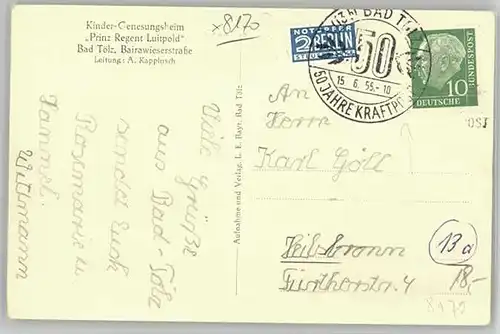 Kinder-Genesungsheim
„Prinz Regent Luitpold"
Bad Tölz, Bairawieserstraße
Leitung: A. Kapplusch
x8170
Viele Grüße
aus Bad-Tölz
sendet Euch
Rosemarie u.
Hannel.
Wittmann
Aufnahme und Verlag L. E. Bayr. Bad Tölz
NOTOPFER
2 BERLIN
STEUERMARKE
BAD TÖLZ
50
15.6.55.-10
50 JAHRE KRAFTP
10
DEUTSCHE
BUNDESPOST
An
Herrn
Karl Göll
Heilbronn
Fürtherstr. 4
13a
18,-
8170